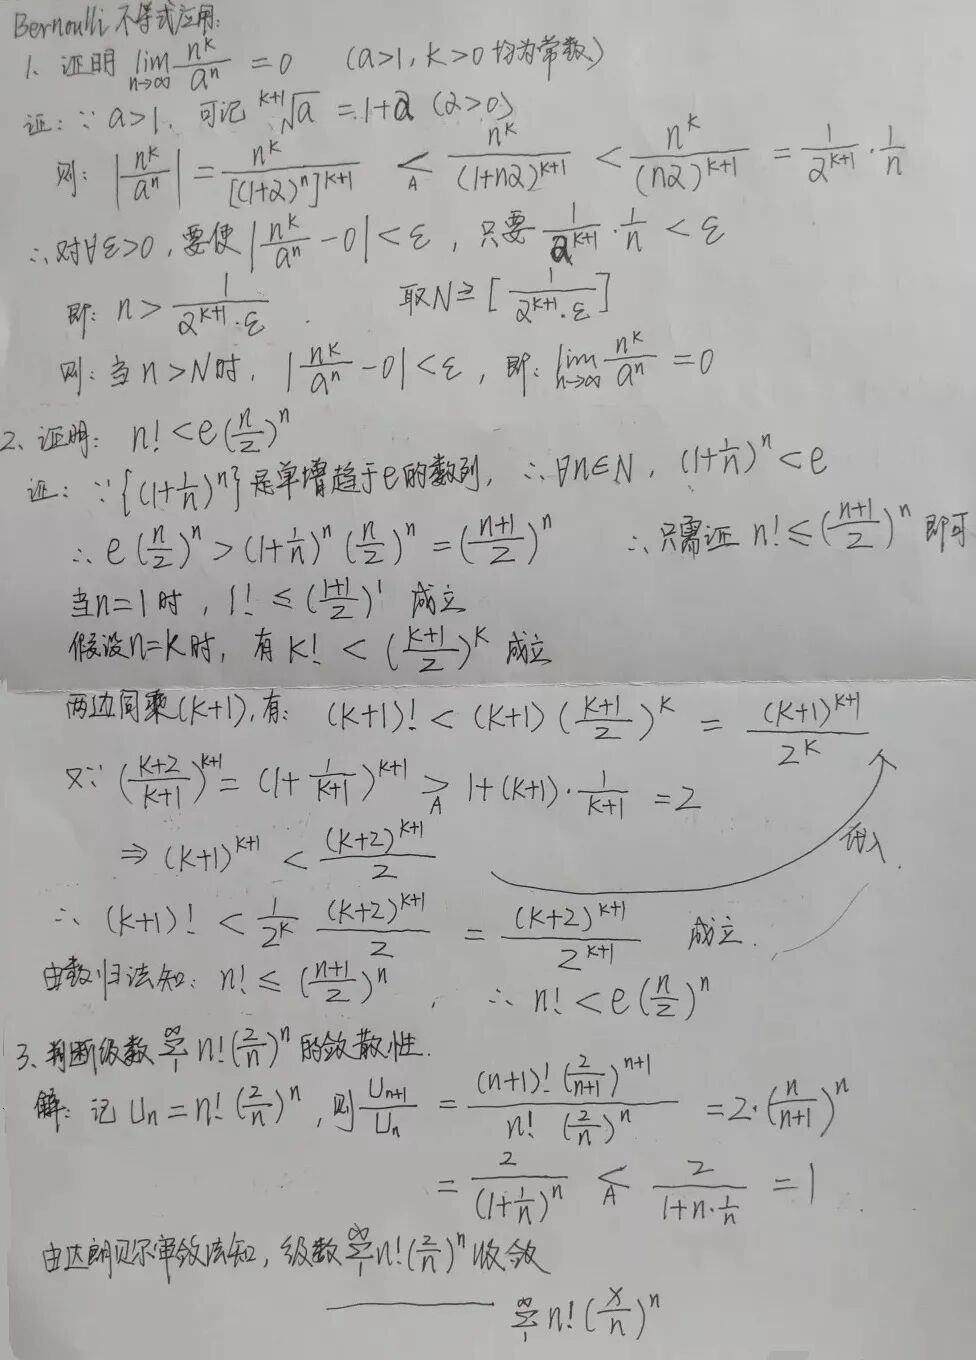 Bernoulli 不等式应用:
1、证明 lim_{n→∞} n^k/a^n = 0 (a>1, k>0 均为常数)
证: ∵ a>1, 可记 ^{k+1}√a = 1+α (α>0)
则: |n^k/a^n| = n^k/[(1+α)^n]^{k+1} <_A n^k/(1+nα)^{k+1} < n^k/(nα)^{k+1} = 1/α^{k+1} · 1/n
∴ 对∀ε>0, 要使 |n^k/a^n - 0| < ε, 只要 1/α^{k+1} · 1/n < ε
即: n > 1/(α^{k+1}·ε). 取N ≥ [1/(α^{k+1}·ε)]
则: 当 n>N 时, |n^k/a^n - 0| < ε, 即: lim_{n→∞} n^k/a^n = 0
2、证明: n! < e(n/2)^n
证: ∵ {(1+1/n)^n} 是单增趋于e的数列, ∴ ∀n∈N, (1+1/n)^n < e
∴ e(n/2)^n > (1+1/n)^n (n/2)^n = ((n+1)/2)^n ∴ 只需证 n! ≤ ((n+1)/2)^n 即可
当n=1时, 1! ≤ ((1+1)/2)^1 成立
假设n=k时, 有 k! < ((k+1)/2)^k 成立
两边同乘(k+1), 有: (k+1)! < (k+1)((k+1)/2)^k = (k+1)^{k+1}/2^k
又∵ ((k+2)/(k+1))^{k+1} = (1+1/(k+1))^{k+1} >_A 1+(k+1)·1/(k+1) = 2
⇒ (k+1)^{k+1} < (k+2)^{k+1}/2 代入
∴ (k+1)! < 1/2^k (k+2)^{k+1}/2 = (k+2)^{k+1}/2^{k+1} 成立.
由数归法知: n! ≤ ((n+1)/2)^n, ∴ n! < e(n/2)^n
3、判断级数 ∑_1^∞ n!(2/n)^n 的敛散性.
解: 记 U_n = n!(2/n)^n, 则 U_{n+1}/U_n = (n+1)!(2/(n+1))^{n+1}/(n!(2/n)^n) = 2·(n/(n+1))^n
= 2/(1+1/n)^n <_A 2/(1+n·1/n) = 1
由达朗贝尔审敛法知, 级数 ∑_1^∞ n!(2/n)^n 收敛
—— ∑_1^∞ n!(x/n)^n